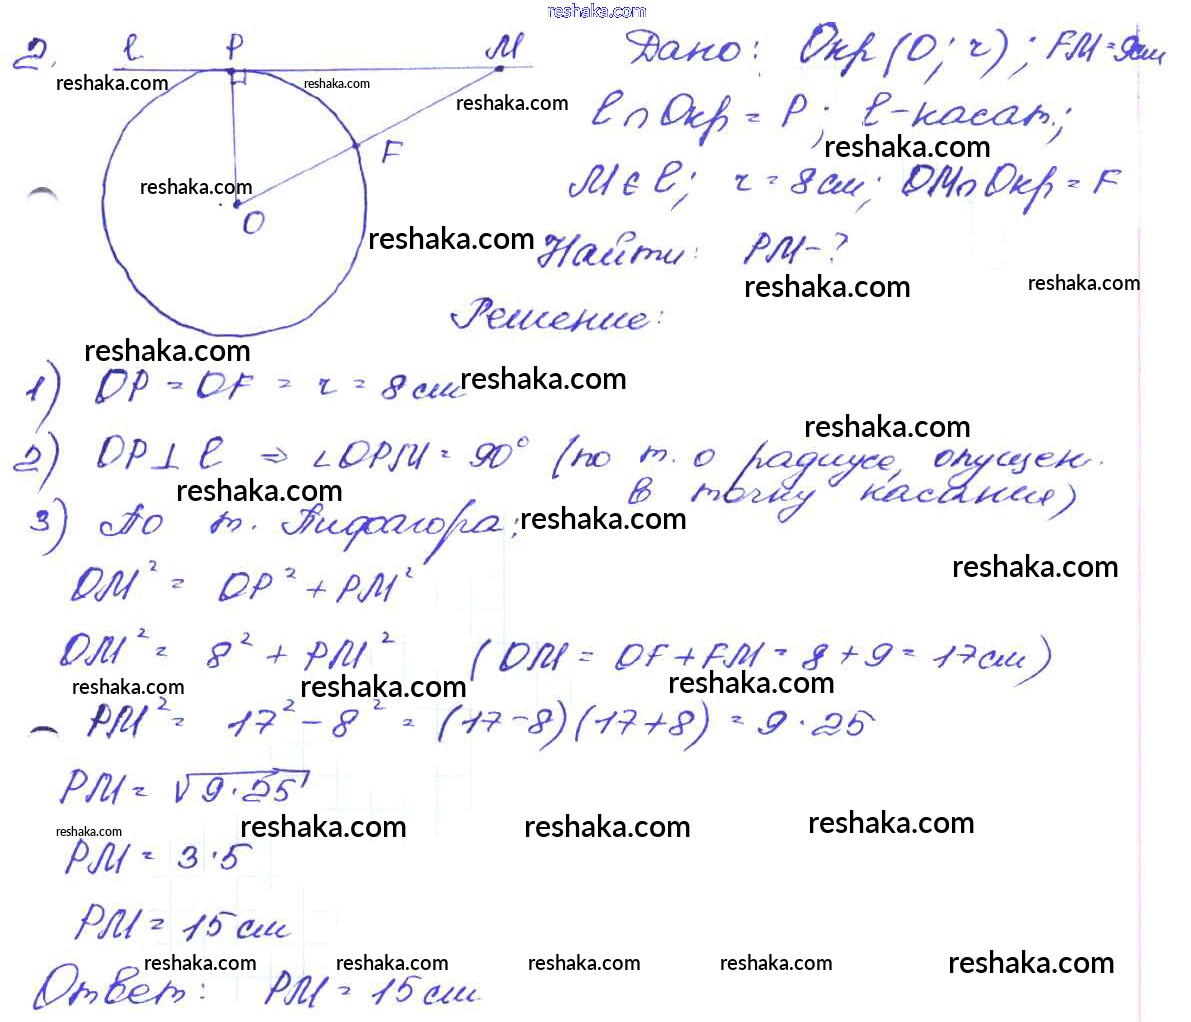 reshaka.com
2. l P M Дано: Окр(O; r); FM = 9см
reshaka.com reshaka.com reshaka.com
F l ∩ Окр = P; l - касат.;
reshaka.com
reshaka.com M ∈ l; r = 8см; OM ∩ Окр = F
O reshaka.com Найти: PM - ?
reshaka.com reshaka.com
Решение:
reshaka.com
1) OP = OF = r = 8 см reshaka.com
reshaka.com
2) OP ⊥ l ⇒ ∠OPM = 90° (по т. о радиусе, опущен.
reshaka.com в точку касания)
3) По т. Пифагора: reshaka.com
reshaka.com
OM² = OP² + PM²
OM² = 8² + PM² (OM = OF + FM = 8 + 9 = 17см)
reshaka.com reshaka.com reshaka.com
PM² = 17² - 8² = (17 - 8)(17 + 8) = 9 · 25
PM = √9 · 25
reshaka.com reshaka.com reshaka.com reshaka.com
PM = 3 · 5
PM = 15 см
reshaka.com reshaka.com reshaka.com reshaka.com reshaka.com
Ответ: PM = 15 см